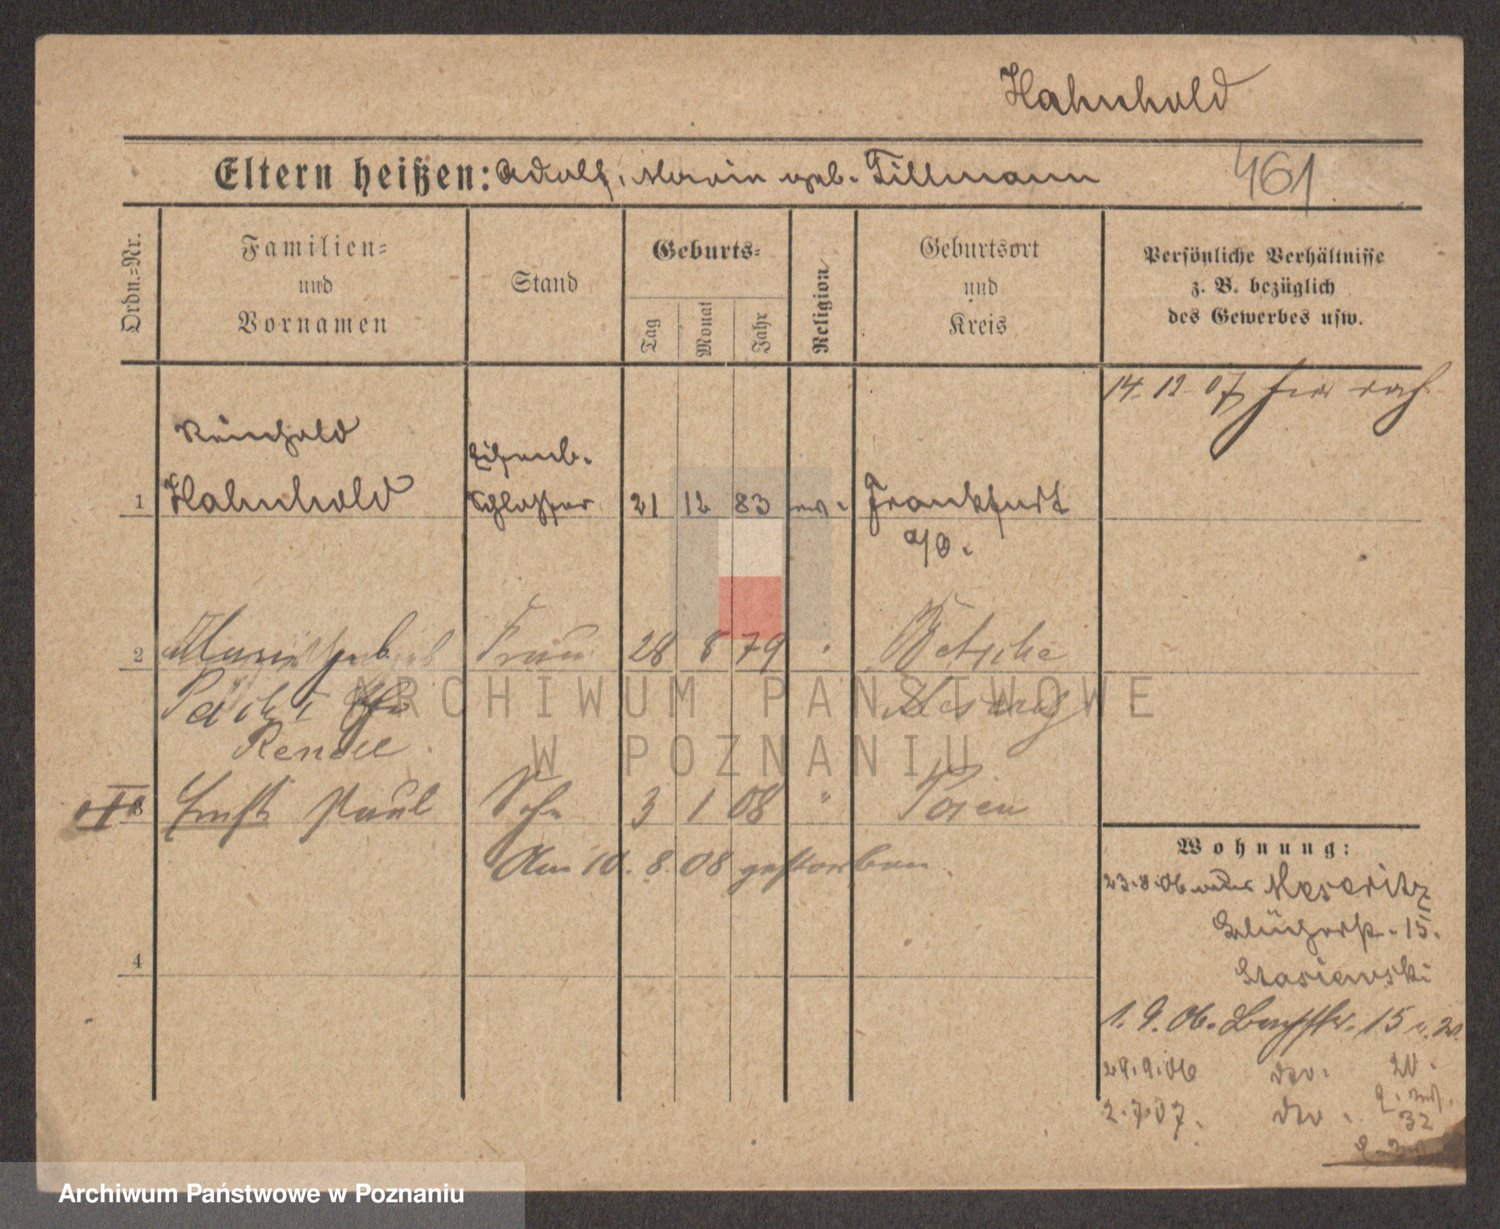 Hahnhold
Eltern heißen: Adolf, Marie geb. Tillmann 461
Ordn.=Nr.
Familien=
und
Vornamen
Stand
Geburts=
Tag
Monat
Jahr
Religion
Geburtsort
und
Kreis
Persönliche Verhältnisse
z. B. bezüglich
des Gewerbes usw.
14. 12. 07
Reinhold
Eisenb.
1 Hahnhold Schlosser 21 12 83 ev. Frankfurt
a/O.
2 geb Frau 28 8 79 Betsche
Ernst Paul Sohn 3 1 08 " Posen
Am 10. 8. 08 gestorben
4
Wohnung:
23.8.06 Meseritz
Blücherstr. 15.
Stasiewski
1. 9. 06. 15
29.9.06 do. 20.
2.7.07. do. 32
ARCHIWUM PAŃSTWOWE
W POZNANIU
Archiwum Państwowe w Poznaniu